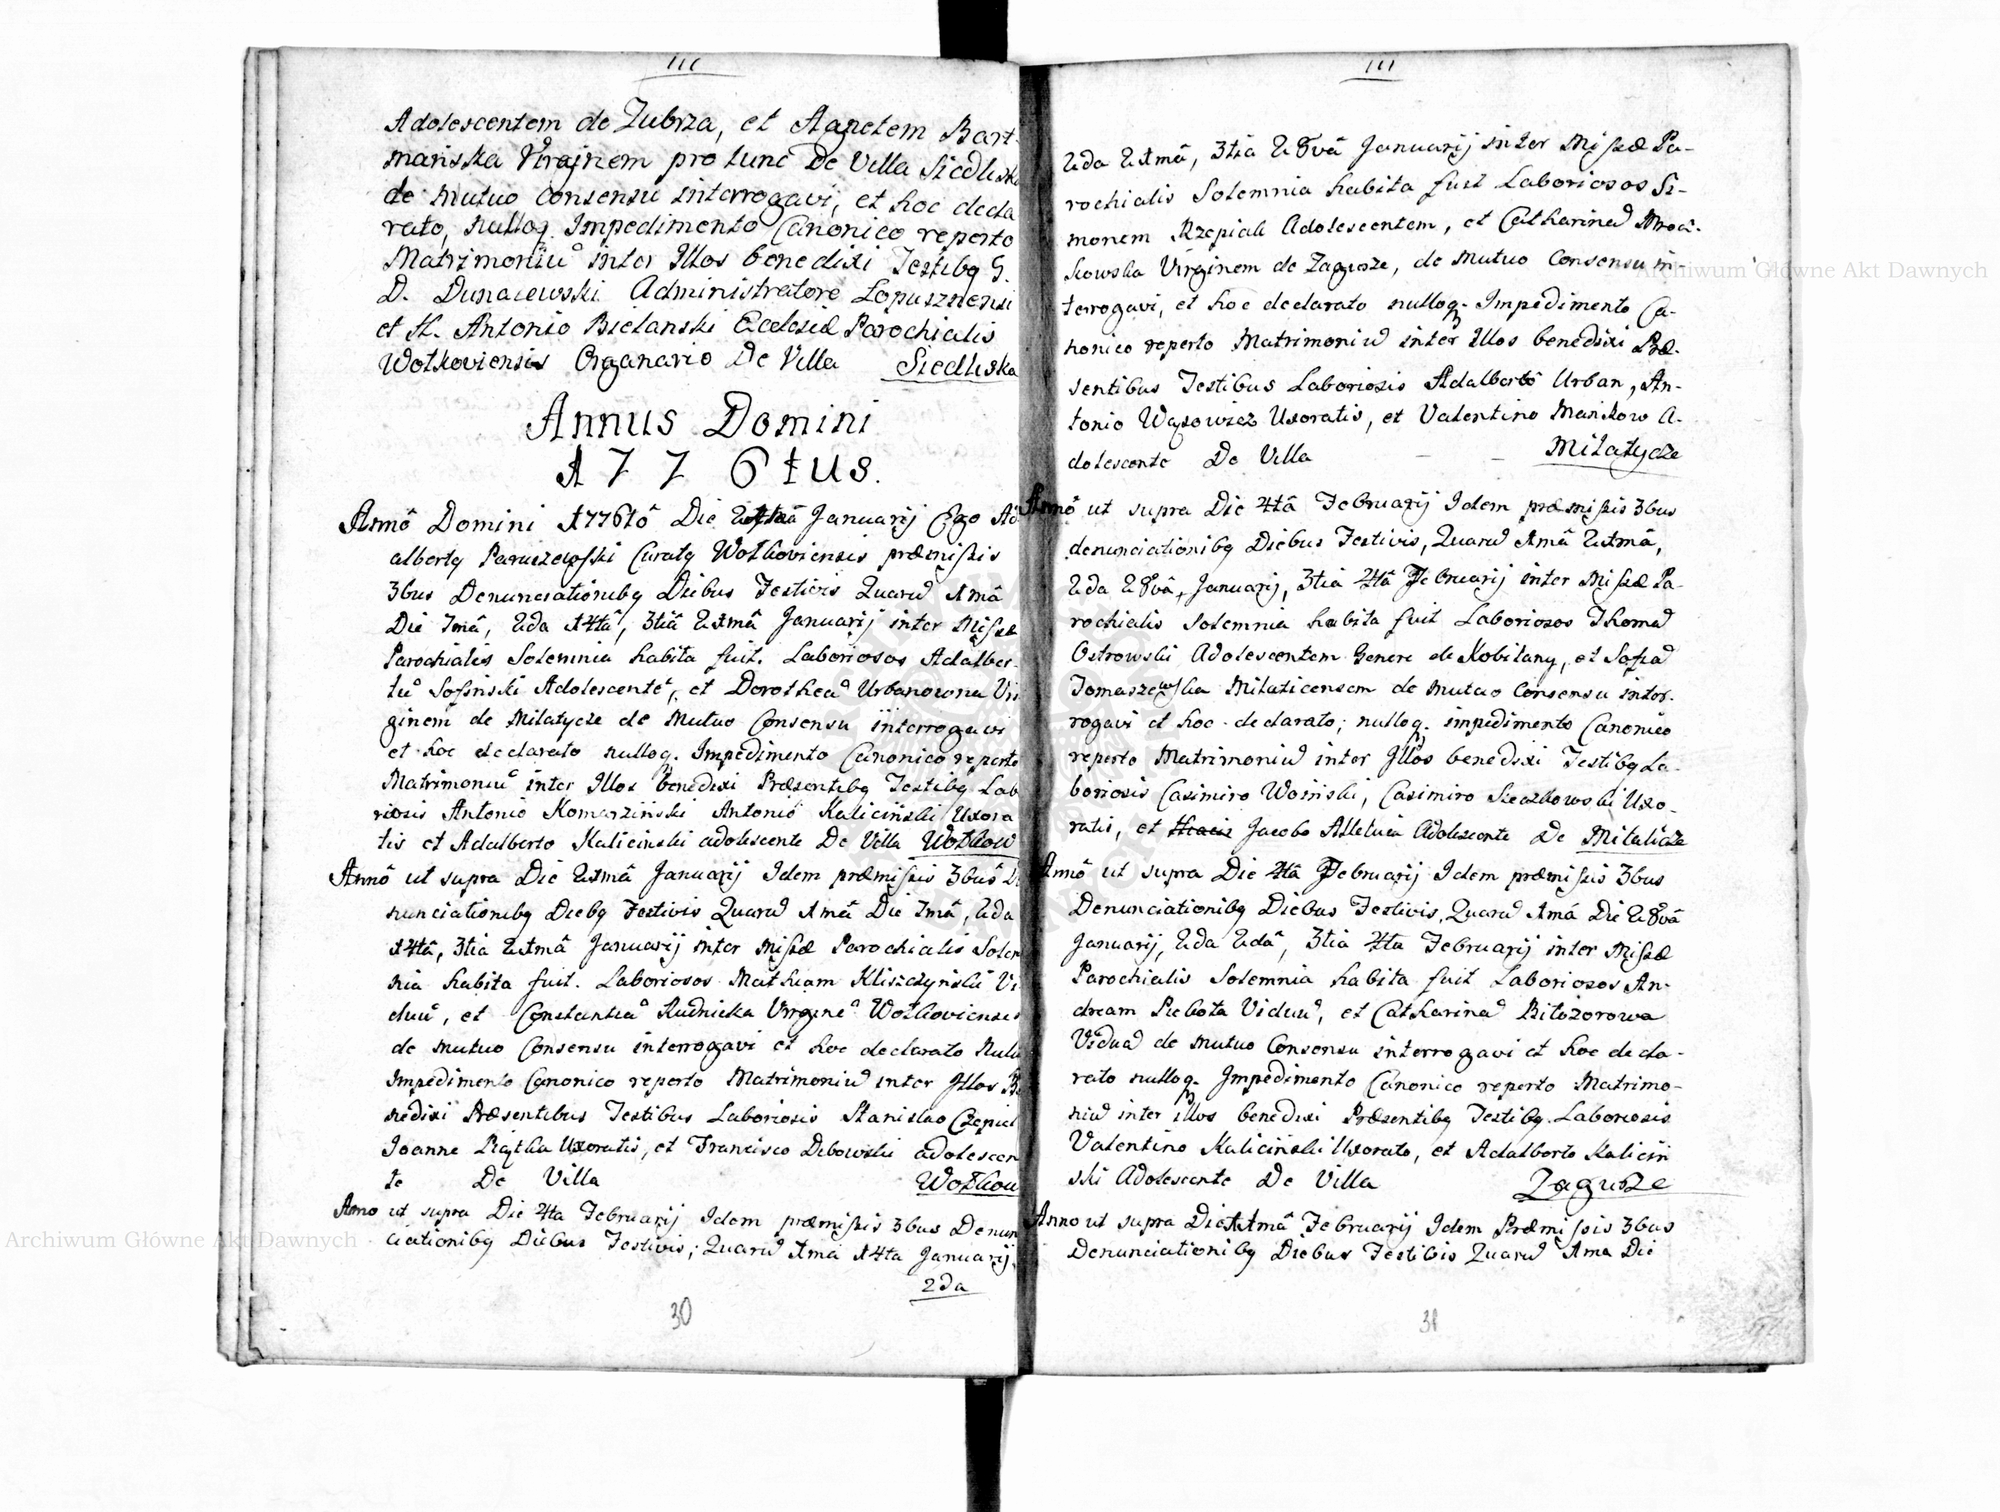 Adolescentem de Zubrza, et Agnetem Bart-
mańska Virginem pro tunc De Villa Siedliska
de mutuo consensu interrogavi, et hoc decla
rato, nulloq. Impedimento Canonico reperto
Matrimoniũ inter Illos benedixi Testibq G.
D. Dunaiewski Administratore Lopusznensi
et H. Antonio Bielanski Ecclesiæ Parochialis
Wołkoviensis Organario De Villa Siedliska
Annus Domini
1776tus.
Annô Domini 1776tô Die Januarij Ego Ad
albertq Paruszewski Curatq Wołkoviensis præmissis
3bus Denunciationibq Diebus Festivis Quarũ 1mâ
Die 7mâ, 2da 14tâ, 3tiâ 21mâ Januarij inter Missæ
Parochialis Solemnia habita fuit. Laboriosos Adalber-
tũ Sosinski Adolescentẽ, et Dorotheã Urbanowna Vir
ginem de Milatycze de Mutuo Consensu interrogavi
et hoc declarato nulloq. Impedimento Canonico reperto
Matrimoniũ inter Illos benedixi Præsentibq Testibq Lab
riosis Antonio Komarziński Antonio Kaliciński Uxora
tis et Adalberto Kaliciński adolescente De Villa Wołkow
Annô ut supra Die 21mâ Januarij Idem præmissis 3bus De
nunciationibq Diebq Festivis Quarũ 1mâ Die 7mâ, 2da
14tâ, 3tia 21mâ Januarij inter Missæ Parochialis Solem
nia habita fuit. Laboriosos Mathiam Kliszczynski Vi
duũ, et Constantiã Rudnicka Virginẽ Wołkoviensis
de mutuo Consensu interrogavi et hoc declarato Nullo
Impedimento Canonico reperto Matrimoniũ inter Illos Be
nedixi Præsentibus Testibus Laboriosis Stanislao Czepiel
Joanne Piątka Uxoratis, et Francisco Dębowski adolescen
te De Villa Wołkow
Anno ut supra Die 4ta Februarij Idem præmissis 3bus Denun
ciationibq Diebus Festivis; Quarũ 1ma 14ta Januarij,
2da
30
2da 21mâ, 3tia 28vâ Januarij inter Missæ Pa-
rochialis Solemnia habita fuit Laboriosos Si-
monem Rzepiak Adolescentem, et Catharinã Mroci-
kowska Virginem de Zagorze, de Mutuo Consensu in-
terrogavi, et hoc declarato nulloq. Impedimento Ca-
nonico reperto Matrimoniũ inter Illos benedixi Præ-
sentibus Testibus Laboriosis Adalbertô Urban, An-
tonio Wąsowicz Uxoratis, et Valentino Mańkow A-
dolescente De Villa Milatycze
Annô ut supra Die 4tâ Februarij Idem præmissis 3bus
denunciationibq Diebus Festivis, Quarũ 1mâ 21mâ,
2da 28vâ, Januarij, 3tia 4tâ Februarij inter Missæ Pa-
rochialis Solemnia habita fuit Laboriosos Thomã
Ostrowski Adolescentem Genere de Kobilany, et Sofiã
Tomaszewska Milaticensem de mutuo Consensu inter-
rogavi et hoc declarato; nulloq. impedimento Canonico
reperto Matrimoniũ inter Illos benedixi Testibq La-
boriosis Casimiro Woinski, Casimiro Sieczkowski Uxo-
ratis, et Jacobo Alleluia Adolescente De Milaticze
Annô ut supra Die 4tâ Februarij Idem præmissis 3bus
Denunciationibq Diebus Festivis, Quarũ 1mâ Die 28vâ
Januarij, 2da 2dâ, 3tia 4ta Februarij inter Missæ
Parochialis Solemnia habita fuit Laboriosos An-
dream Rebota Viduũ, et Catharinã Bitozorowa
Viduã de mutuo Consensu interrogavi et hoc decla-
rato nulloq. Impedimento Canonico reperto Matrimo-
niũ inter illos benedixi Præsentibq Testibq Laboriosis
Valentino Kaliciński Uxorato, et Adalberto Kalicin
ski Adolescente De Villa Zagurze
Anno ut supra Die 11mâ Februarij Idem Præmissis 3bus
Denunciationibq Diebus Festibis Quarũ 1ma Die
31
Archiwum Główne Akt Dawnych
Archiwum Główne Akt Dawnych